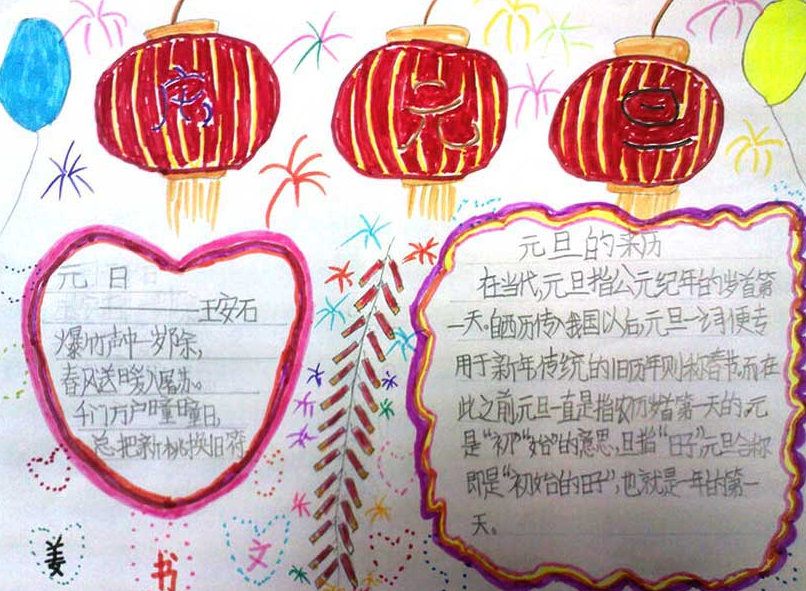 庆 元 旦
元 日
——王安石
爆竹声中一岁除,
春风送暖入屠苏。
千门万户曈曈日,
总把新桃换旧符
元旦的来历
在当代,元旦指公元纪年的岁首第
一天。自西历传入我国以后,元旦一词便专
用于新年,传统的旧历年则称春节。而在
此之前,元旦一直是指农历岁首第一天的。元
是“初”“始”的意思,旦指“日子”,元旦合称
即是“初始的日子”,也就是一年的第一
天。
姜 书 文